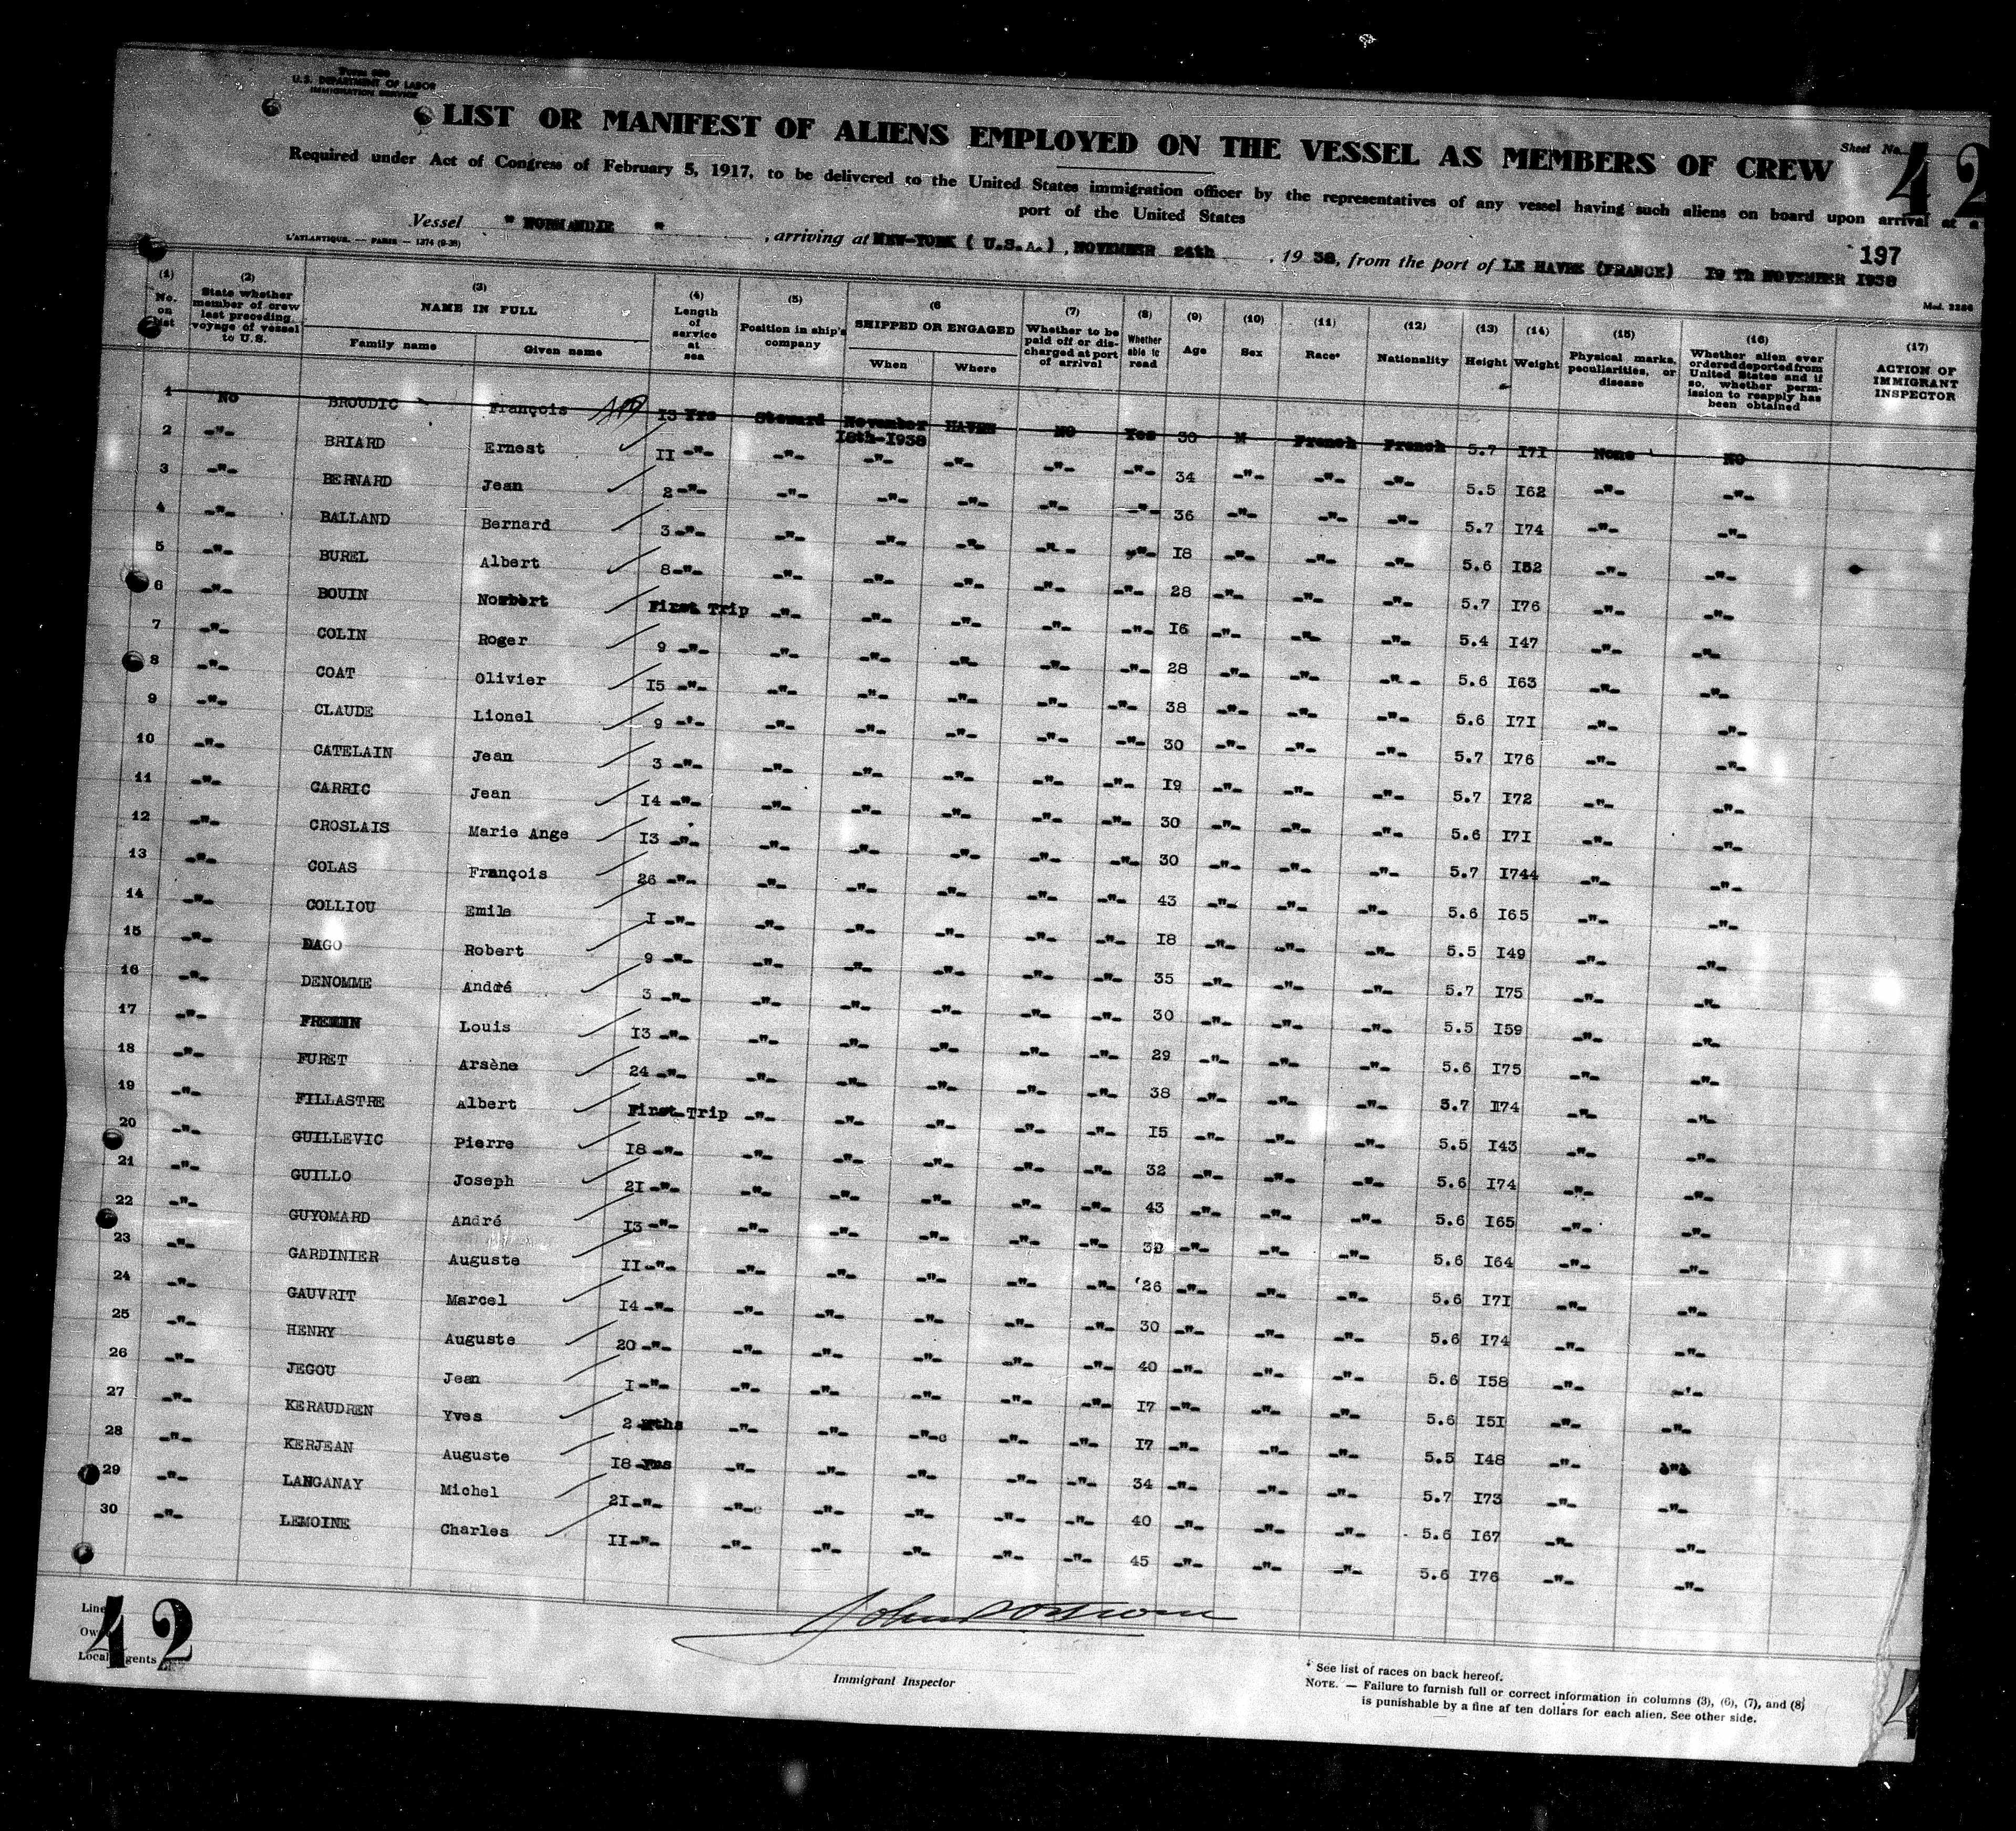 Form 689
U.S. DEPARTMENT OF LABOR
IMMIGRATION SERVICE
LIST OR MANIFEST OF ALIENS EMPLOYED ON THE VESSEL AS MEMBERS OF CREW
Sheet No. 42
Required under Act of Congress of February 5, 1917, to be delivered to the United States immigration officer by the representatives of any vessel having such aliens on board upon arrival at a
port of the United States
Vessel " NORMANDIE " , arriving at NEW-YORK ( U.S.A.) , NOVEMBER 24th , 19 38, from the port of LE HAVRE (FRANCE) 19 Th NOVEMBER 1938
197
L'ATLANTIQUE. — PARIS — 1374 (9-38)
Mod. 2256
(1) No. on list (2) State whether member of crew last preceding voyage of vessel to U.S. (3) NAME IN FULL Family name Given name (4) Length of service at sea (5) Position in ship's company (6 SHIPPED OR ENGAGED When Where (7) Whether to be paid off or discharged at port of arrival (8) Whether able to read (9) Age (10) Sex (11) Race* (12) Nationality (13) Height (14) Weight (15) Physical marks, peculiarities, or disease (16) Whether alien ever ordered deported from United States and if so, whether permission to reapply has been obtained (17) ACTION OF IMMIGRANT INSPECTOR
1 No BROUDIC François 13 Yrs Steward November 18th-1938 HAVRE NO Yes 30 M French French 5.7 I7I None NO
2 -"- BRIARD Ernest II -"- -"- -"- -"- -"- -"- 34 -"- -"- -"- 5.5 I62 -"- -"-
3 -"- BERNARD Jean 2 -"- -"- -"- -"- -"- -"- 36 -"- -"- -"- 5.7 I74 -"- -"-
4 -"- BALLAND Bernard 3 -"- -"- -"- -"- -"- -"- I8 -"- -"- -"- 5.6 I52 -"- -"-
5 -"- BUREL Albert 8 -"- -"- -"- -"- -"- -"- 28 -"- -"- -"- 5.7 I76 -"- -"-
6 -"- BOUIN Norbert First Trip -"- -"- -"- -"- -"- I6 -"- -"- -"- 5.4 I47 -"- -"-
7 -"- COLIN Roger 9 -"- -"- -"- -"- -"- -"- 28 -"- -"- -"- 5.6 I63 -"- -"-
8 -"- COAT Olivier I5 -"- -"- -"- -"- -"- -"- 38 -"- -"- -"- 5.6 I7I -"- -"-
9 -"- CLAUDE Lionel 9 -"- -"- -"- -"- -"- -"- 30 -"- -"- -"- 5.7 I76 -"- -"-
10 -"- CATELAIN Jean 3 -"- -"- -"- -"- -"- -"- I9 -"- -"- -"- 5.7 I72 -"- -"-
11 -"- CARRIC Jean I4 -"- -"- -"- -"- -"- -"- 30 -"- -"- -"- 5.6 I7I -"- -"-
12 -"- CROSLAIS Marie Ange I3 -"- -"- -"- -"- -"- -"- 30 -"- -"- -"- 5.7 I744 -"- -"-
13 -"- COLAS François 26 -"- -"- -"- -"- -"- -"- 43 -"- -"- -"- 5.6 I65 -"- -"-
14 -"- COLLIOU Emile I -"- -"- -"- -"- -"- -"- I8 -"- -"- -"- 5.5 I49 -"- -"-
15 -"- DAGO Robert 9 -"- -"- -"- -"- -"- -"- 35 -"- -"- -"- 5.7 I75 -"- -"-
16 -"- DENOMME André 3 -"- -"- -"- -"- -"- -"- 30 -"- -"- -"- 5.5 I59 -"- -"-
17 -"- Louis I3 -"- -"- -"- -"- -"- -"- 29 -"- -"- -"- 5.6 I75 -"- -"-
18 -"- FURET Arsène 24 -"- -"- -"- -"- -"- -"- 38 -"- -"- -"- 5.7 I74 -"- -"-
19 -"- FILLASTRE Albert First Trip -"- -"- -"- -"- -"- I5 -"- -"- -"- 5.5 I43 -"- -"-
20 -"- GUILLEVIC Pierre I8 -"- -"- -"- -"- -"- -"- 32 -"- -"- -"- 5.6 I74 -"- -"-
21 -"- GUILLO Joseph 2I -"- -"- -"- -"- -"- -"- 43 -"- -"- -"- 5.6 I65 -"- -"-
22 -"- GUYOMARD André I3 -"- -"- -"- -"- -"- -"- -"- -"- -"- 5.6 I64 -"- -"-
23 -"- GARDINIER Auguste II -"- -"- -"- -"- -"- -"- 26 -"- -"- -"- 5.6 I7I -"- -"-
24 -"- GAUVRIT Marcel I4 -"- -"- -"- -"- -"- -"- 30 -"- -"- -"- 5.6 I74 -"- -"-
25 -"- HENRY Auguste 20 -"- -"- -"- -"- -"- -"- 40 -"- -"- -"- 5.6 I58 -"- -"-
26 -"- JEGOU Jean I -"- -"- -"- -"- -"- -"- I7 -"- -"- -"- 5.6 I5I -"- -"-
27 -"- KERAUDREN Yves 2 mths -"- -"- -"- -"- -"- I7 -"- -"- -"- 5.5 I48 -"- -"-
28 -"- KERJEAN Auguste I8 Yrs -"- -"- -"- -"- -"- 34 -"- -"- -"- 5.7 I73 -"- -"-
29 -"- LANGANAY Michel 2I -"- -"- -"- -"- -"- -"- 40 -"- -"- -"- 5.6 I67 -"- -"-
30 -"- LEMOINE Charles II -"- -"- -"- -"- -"- -"- 45 -"- -"- -"- 5.6 I76 -"- -"-
Line
Local Agents
42
Immigrant Inspector
* See list of races on back hereof.
NOTE. — Failure to furnish full or correct information in columns (3), (6), (7), and (8)
is punishable by a fine af ten dollars for each alien. See other side.